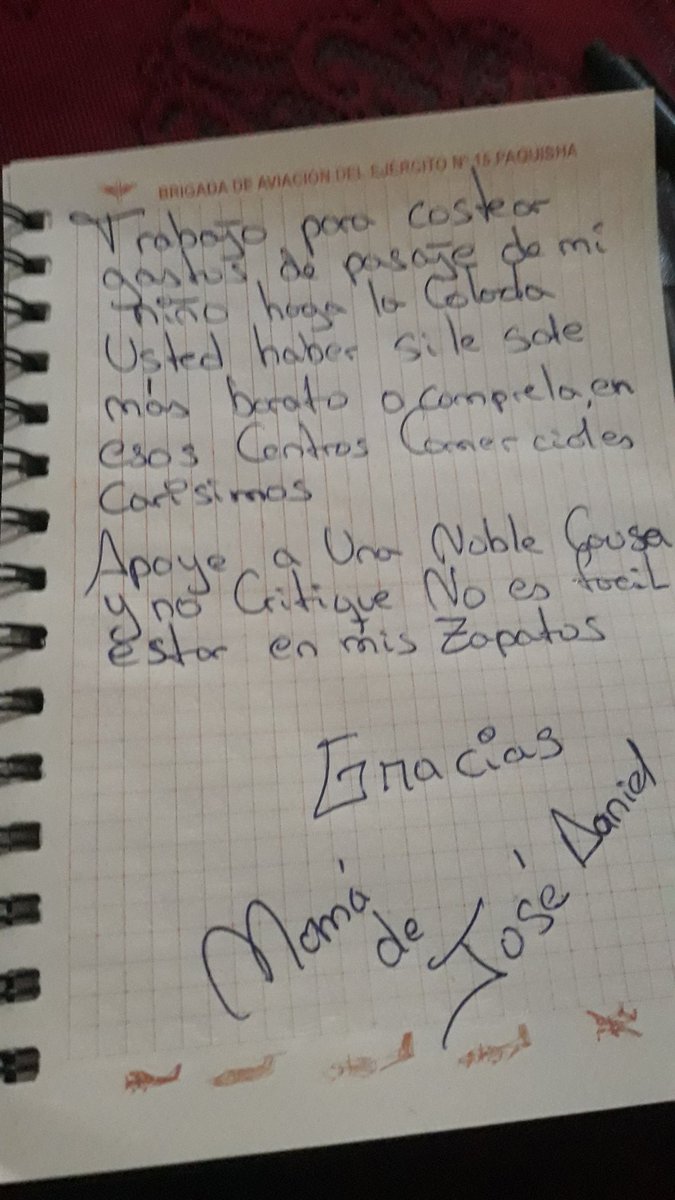 BRIGADA DE AVIACIÓN DEL EJÉRCITO Nº 15 PAQUISHA
Trabajo para costear
gastos de pasaje de mi
niño haga la Colada
Usted haber si le sale
más barato o comprela en
esos Centros Comerciales
Caresimos
Apoye a Una Noble Causa
y no Critique No es facil
estar en mis Zapatos
Gracias
Mamá de José Daniel